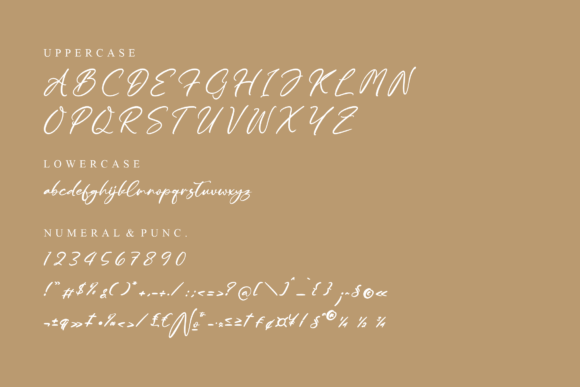 UPPERCASE
A B C D E F G H I J K L M N
O P Q R S T U V W X Y Z
LOWERCASE
abcdefghijklmnopqrstuvwxyz
NUMERAL & PUNC.
1 2 3 4 5 6 7 8 9 0
! " # $ % & ( ) * + , - + . / : ; < = > ? @ [ \ ] ^ _ ` { } ¡ § © «
¬ ± » ‡ < > / £ € № ≤ ≥ † § ® ¼ ½ ¾